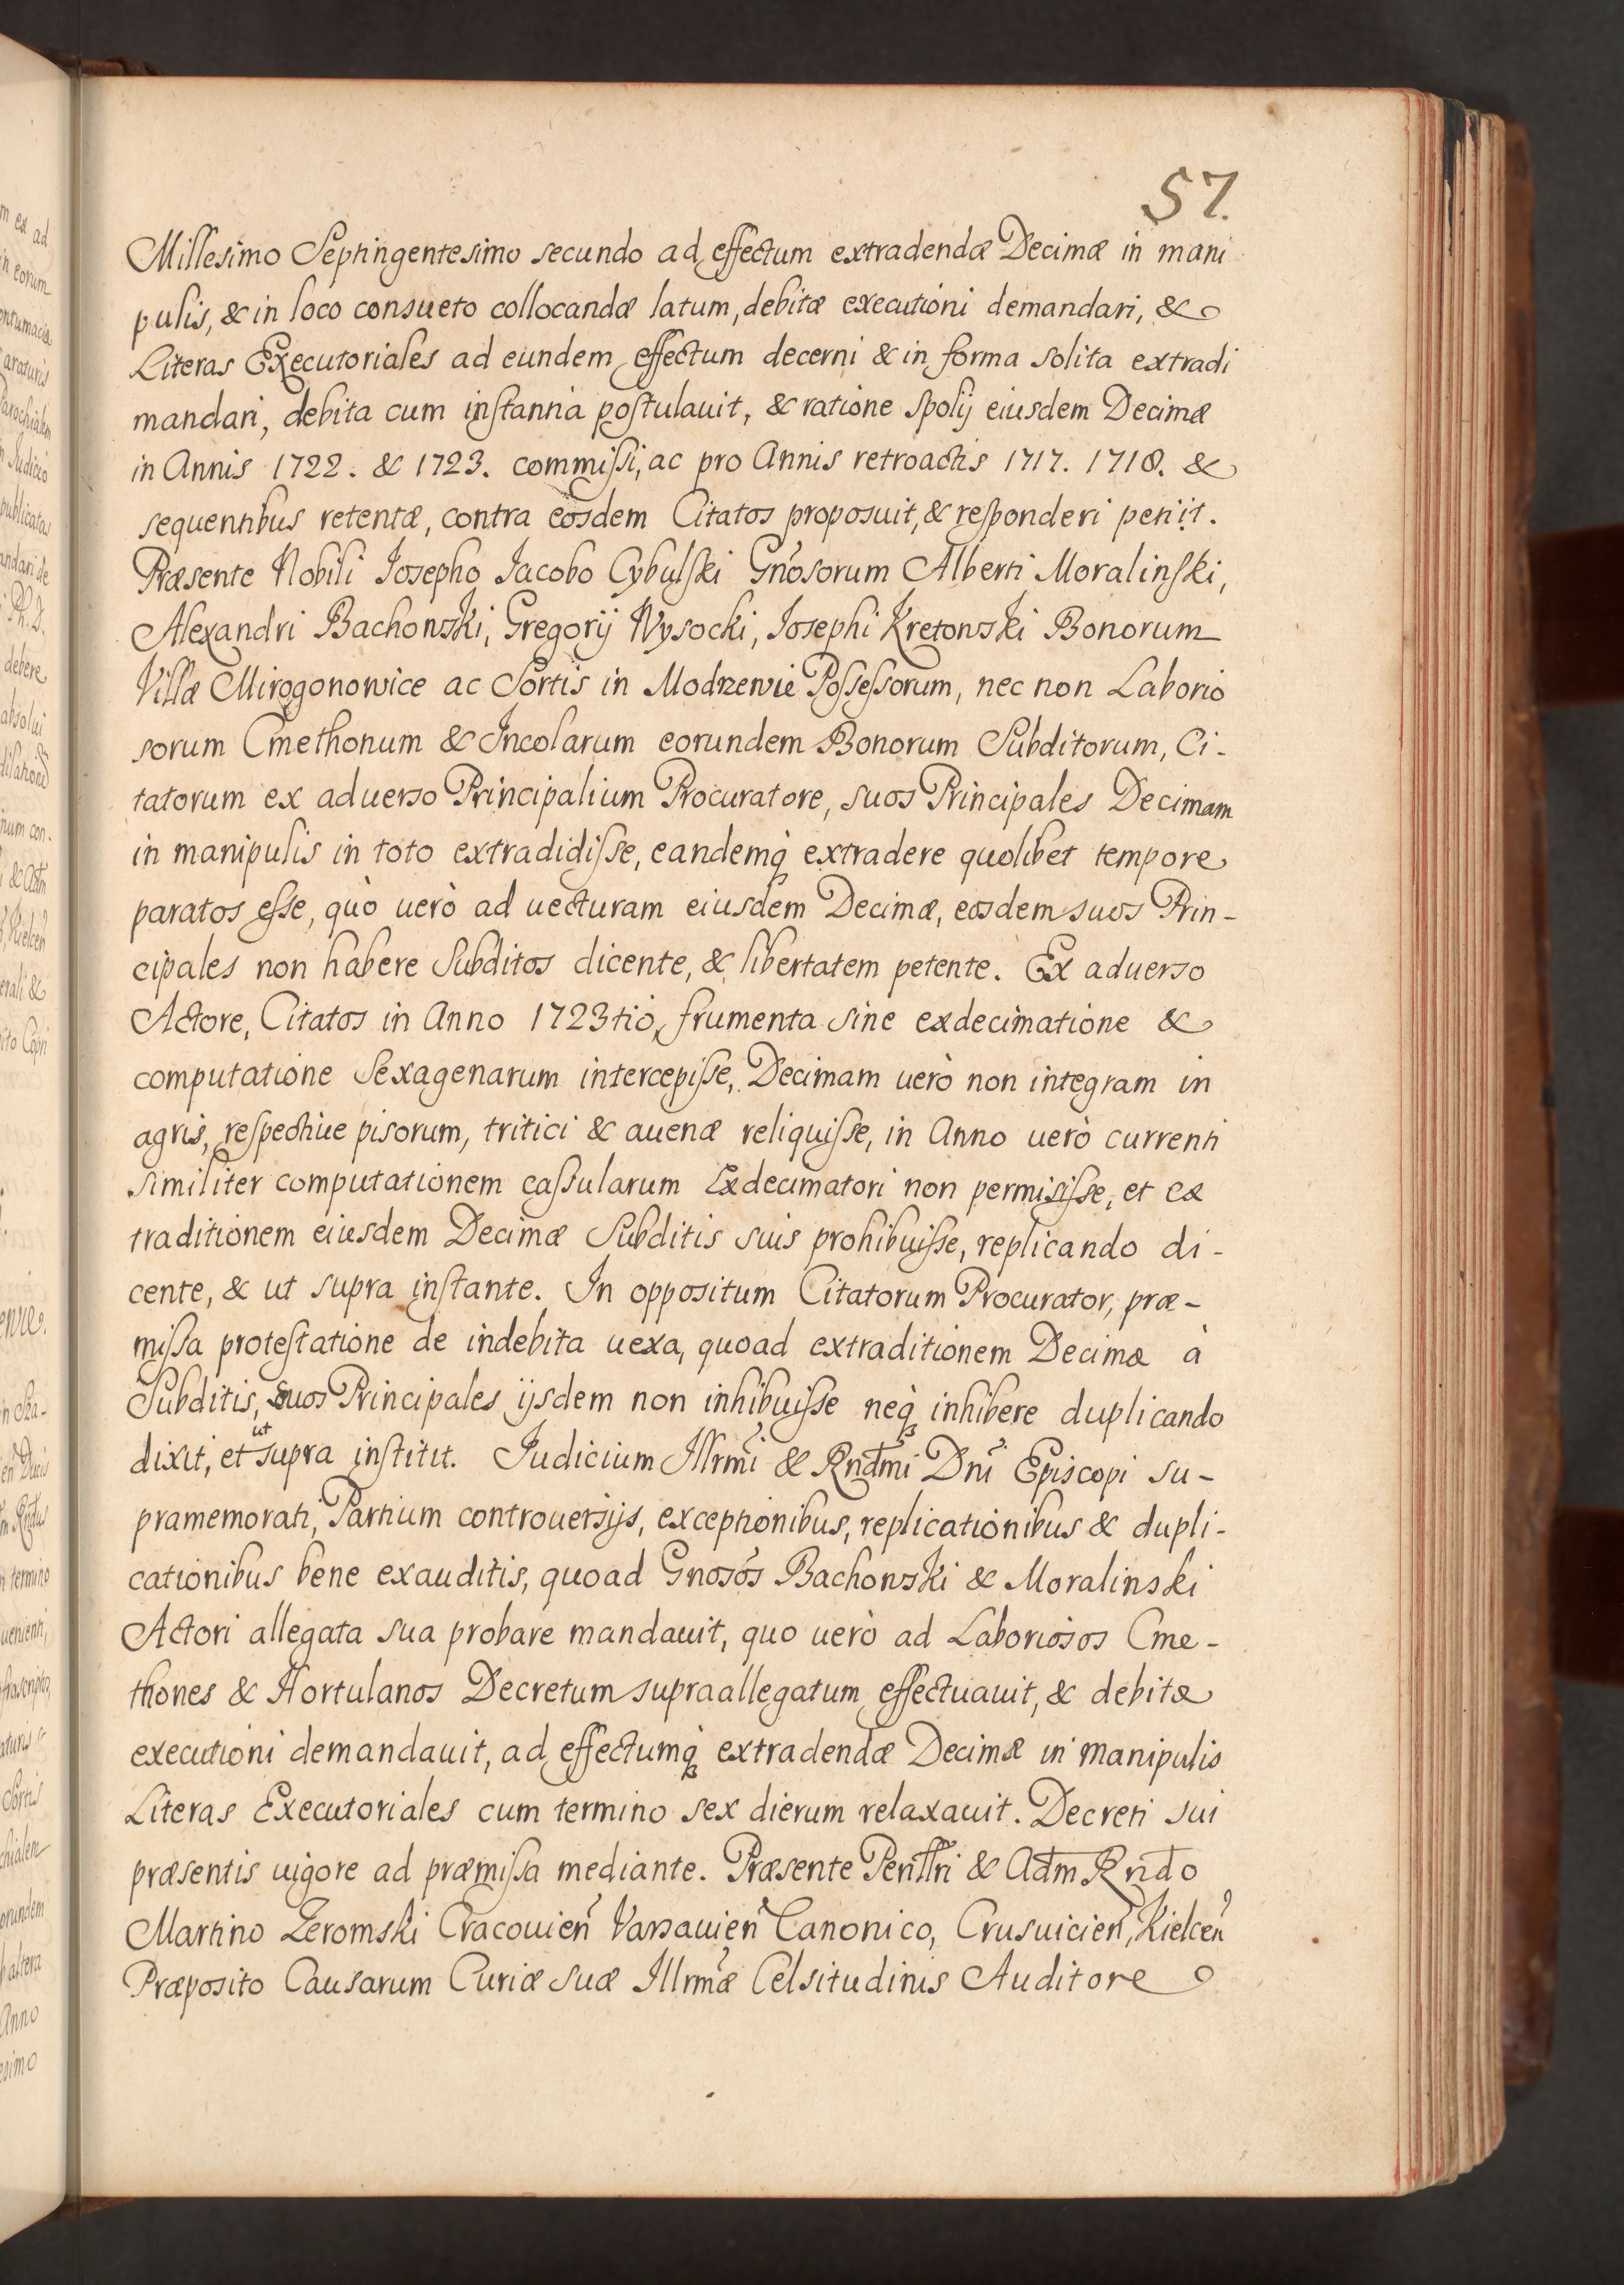 57.
Millesimo Septingentesimo secundo ad effectum extradendæ Decimæ in mani
pulis, & in loco consueto collocandæ latum, debitæ executioni demandari, &
Literas Executoriales ad eundem effectum decerni & in forma solita extradi
mandari, debita cum instantia postulauit, & ratione spolij eiusdem Decimæ
in Annis 1722. & 1723. commissi, ac pro Annis retroactis 1717. 1718. &
sequentibus retentæ, contra eosdem Citatos proposuit, & responderi petijt.
Præsente Nobili Josepho Jacobo Cybulski Gñosorum Alberti Moralinski,
Alexandri Bachowski, Gregorij Wysocki, Josephi Kretowski Bonorum
Villæ Mirogonowice ac Sortis in Modrzewie Possessorum, nec non Laborio
sorum Cmethonum & Incolarum eorundem Bonorum Subditorum, Ci-
tatorum ex aduerso Principalium Procuratore, suos Principales Decimam
in manipulis in toto extradidisse, eandemq̀ extradere quolibet tempore
paratos esse, quò uerò ad uecturam eiusdem Decimæ, eosdem suos Prin-
cipales non habere Subditos dicente, & libertatem petente. Ex aduerso
Actore, Citatos in Anno 1723tio, frumenta sine exdecimatione &
computatione Sexagenarum intercepisse, Decimam uerò non integram in
agris, respectiue pisorum, tritici & auenæ reliquisse, in Anno uerò currenti
similiter computationem cassularum Exdecimatori non permisisse, et ex
traditionem eiusdem Decimæ Subditis suis prohibuisse, replicando di-
cente, & ut supra instante. In oppositum Citatorum Procurator, præ-
missa protestatione de indebita uexa, quoad extraditionem Decimæ à
Subditis, suos Principales ijsdem non inhibuisse neq̀ inhibere duplicando
dixit, et ut supra institit. Judicium Illrm̃i & Rnd̃mi Dñi Episcopi su-
pramemorati, Partium controuersijs, exceptionibus, replicationibus & dupli-
cationibus bene exauditis, quoad Gnosós Bachowski & Moralinski
Actori allegata sua probare mandauit, quo uerò ad Laboriosos Cme-
thones & Hortulanos Decretum supraallegatum effectuauit, & debitæ
executioni demandauit, ad effectumq̀ extradendæ Decimæ in manipulis
Literas Executoriales cum termino sex dierum relaxauit. Decreti sui
præsentis uigore ad præmissa mediante. Præsente Perillri & Adm Rndo
Martino Zeromski Cracouieñ Varsauieñ Canonico, Crusuicieñ, Kielceñ
Præposito Causarum Curiæ suæ Illrm̃æ Celsitudinis Auditore